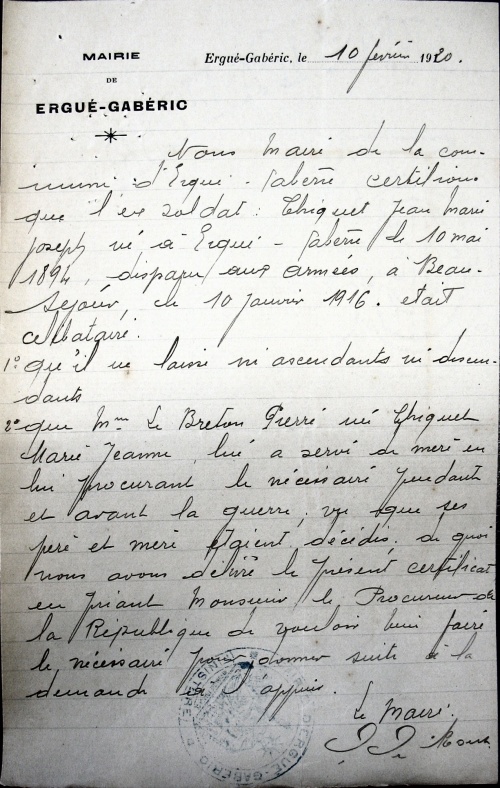 MAIRIE
DE
ERGUÉ-GABÉRIC
Ergué-Gabéric, le 10 février 1920.
Nous Maire de la com-
mune d'Ergué-Gabéric certifions
que l'ex soldat : Thiquet Jean Marie
Joseph né à Ergué-Gabéric le 10 mai
1894, disparu aux armées, à Beau-
Séjour, le 10 janvier 1916. était
célibataire.
1° qu'il ne laisse ni ascendants ni descen-
dants
2° que Mme Le Breton Pierre née Thiquet
Marie Jeanne, lui a servi de mère en
lui procurant le nécessaire pendant
et avant la guerre, vu que ses
père et mère étaient décédés. de quoi
nous avons délivré le présent certificat
en priant Monsieur le Procureur de
la République de vouloir bien faire
le nécessaire pour donner suite à la
demande à l'appui.
Le Maire.
MAIRIE D'ERGUÉ-GABÉRIC